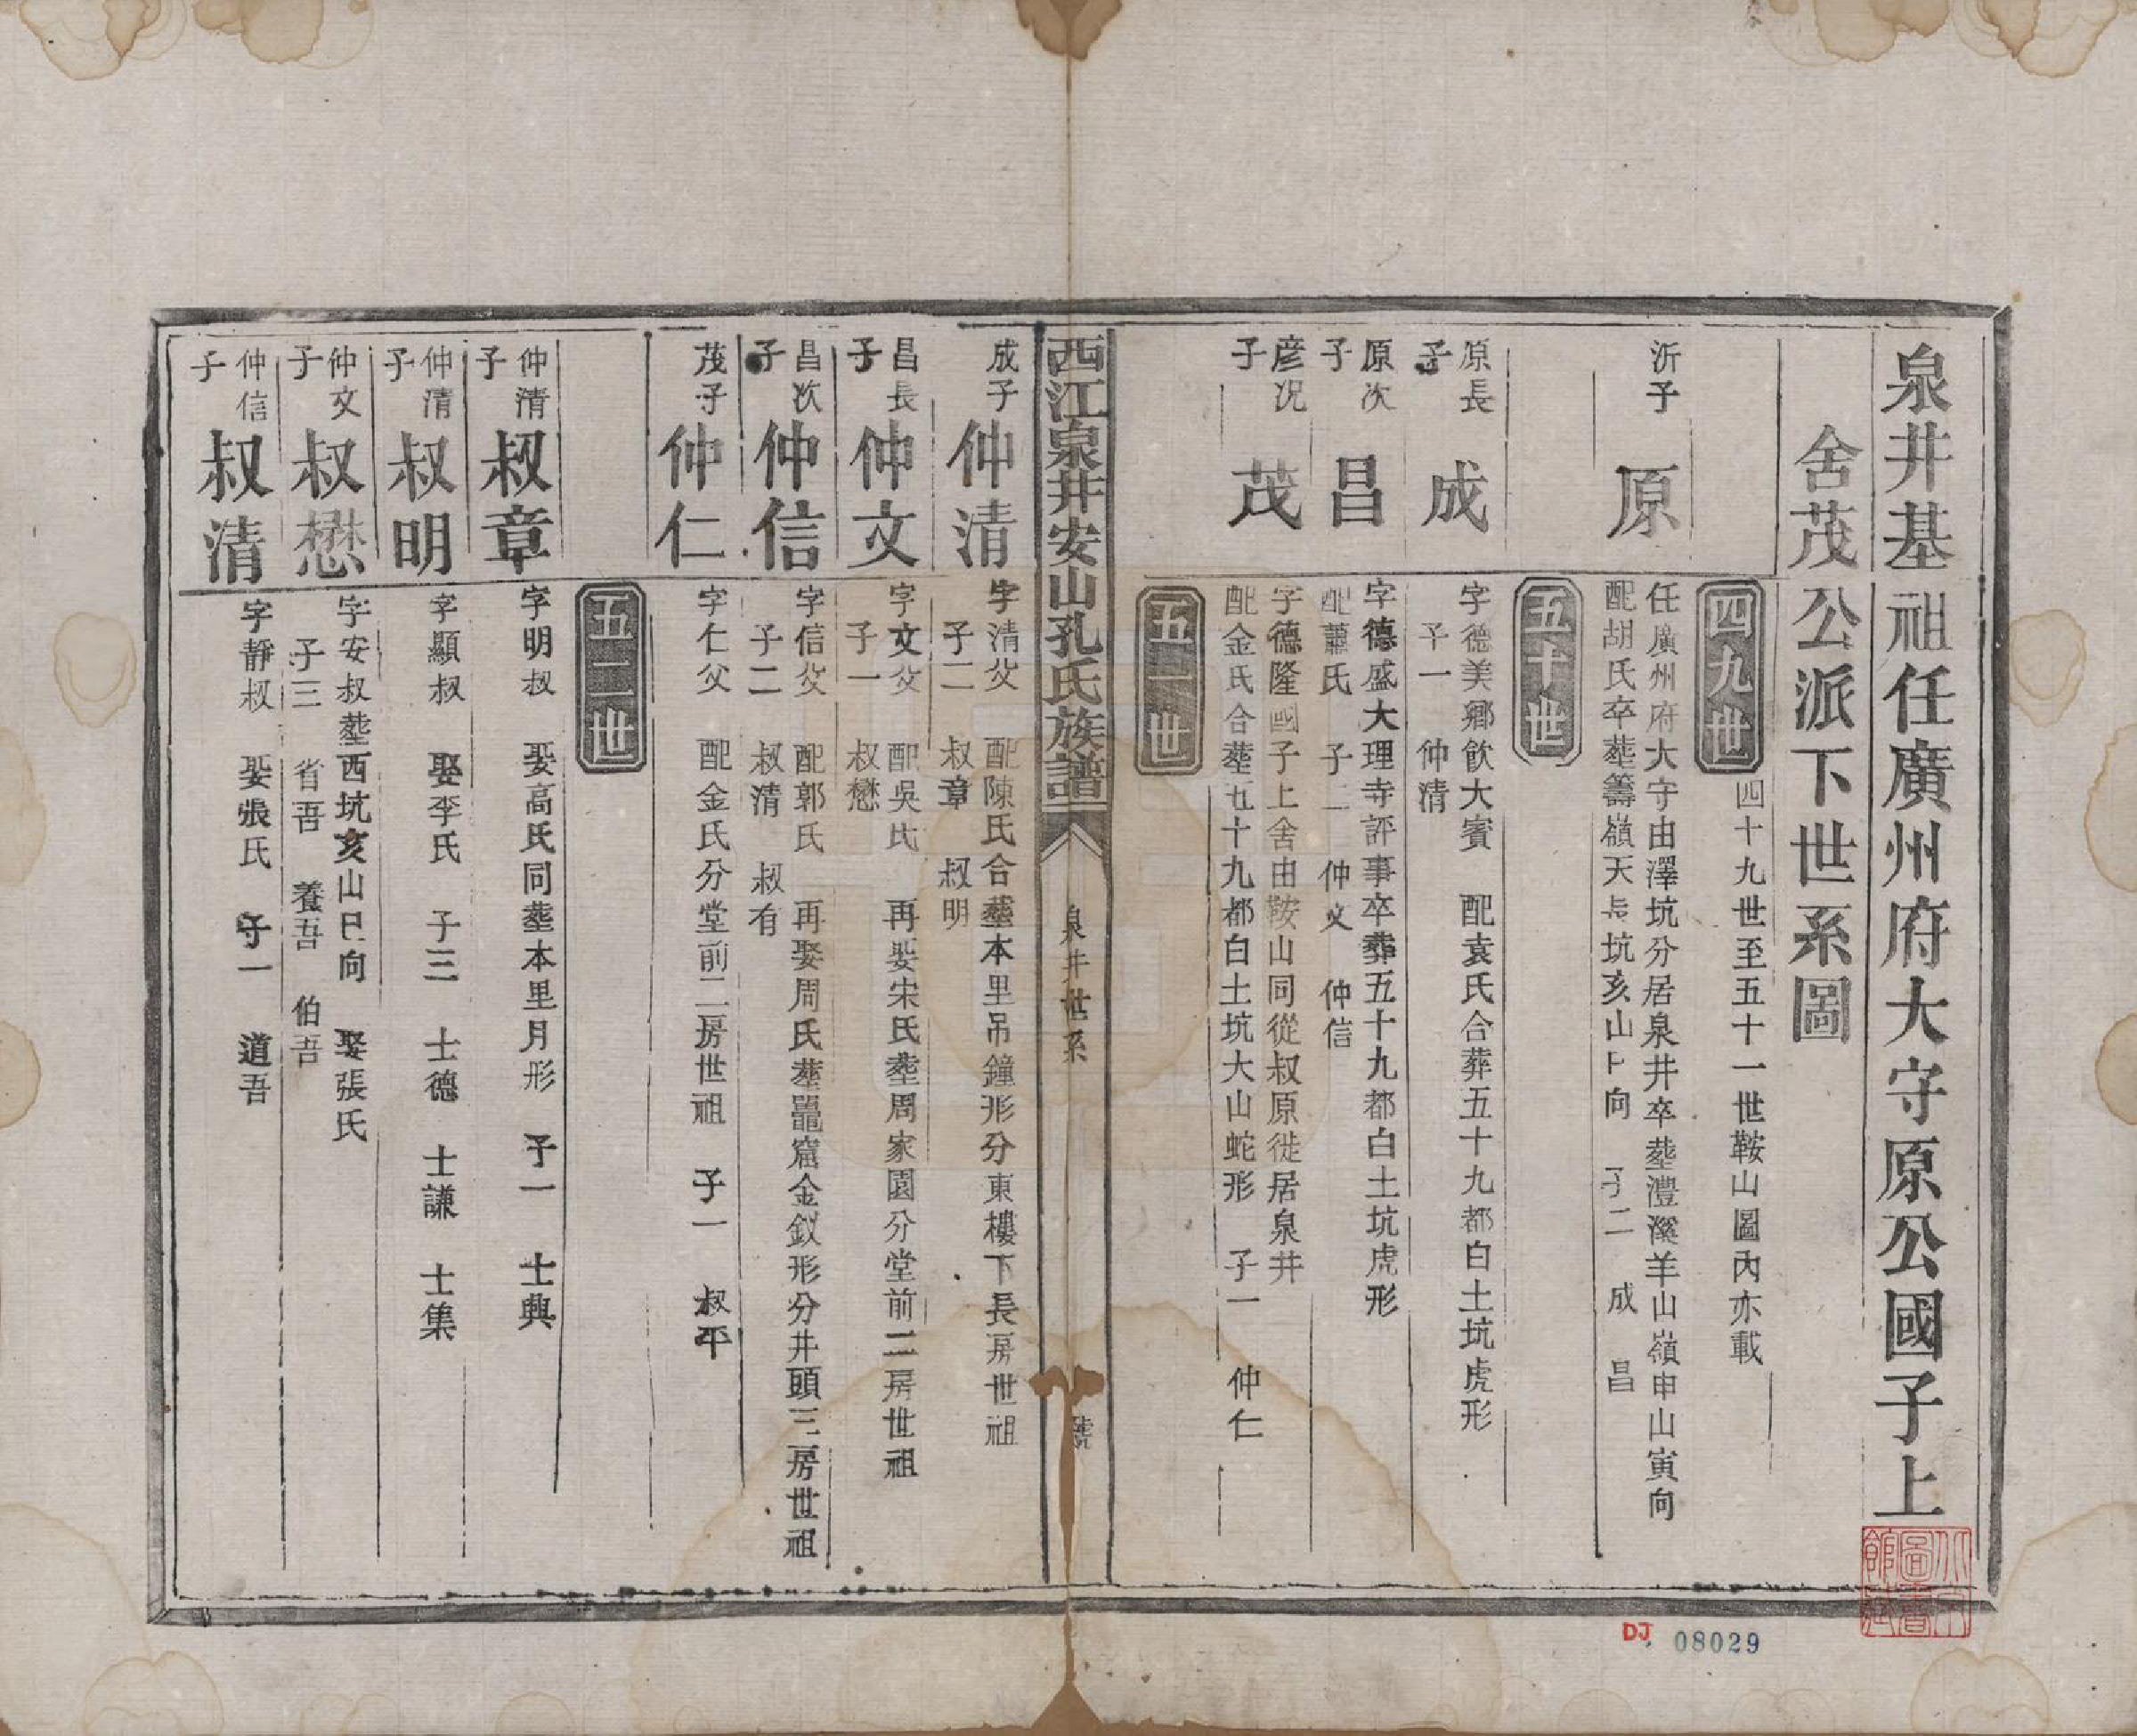 泉井基祖任廣州府大守原公國子上
舍茂公派下世系圖
四九世
四十九世至五十一世鞍山圖內亦載
沂子
原
任廣州府大守由澤坑分居泉井卒塟澧溪羊山嶺申山寅向
配胡氏卒塟籌嶺天 坑亥山 向 子二 成 昌
五十世
原長子
成
字德美鄉飲大賓 配袁氏合葬五十九都白土坑虎形
子一 仲清
原次子
昌
字德盛大理寺評事卒葬五十九都白土坑虎形
配蕭氏 子二 仲文 仲信
彦况子
茂
字德隆國子上舍由鞍山同從叔原徙居泉井
配金氏合塟五十九都白土坑大山蛇形 子一 仲仁
五一世
西江泉井安山孔氏族譜
泉井世系
號
成子
仲清
字清父 配陳氏合塟本里吊鐘形分東樓下長房世祖
子二 叔章 叔明
昌長子
仲文
字文父 配吳氏 再娶宋氏塟周家園分堂前二房世祖
子一 叔懋
昌次子
仲信
字信父 配郭氏 再娶周氏塟鼉窟金釵形分井頭三房世祖
子二 叔清 叔有
茂子
仲仁
字仁父 配金氏分堂前二房世祖 子一 叔平
五二世
仲清子
叔章
字明叔 娶高氏同塟本里月形 子一 士典
仲清子
叔明
字顯叔 娶李氏 子三 士德 士謙 士集
仲文子
叔懋
字安叔塟西坑亥山巳向 娶張氏
子三 省吾 養吾 伯吾
仲信子
叔清
字靜叔 娶張氏 子一 道吾
DJ 08029